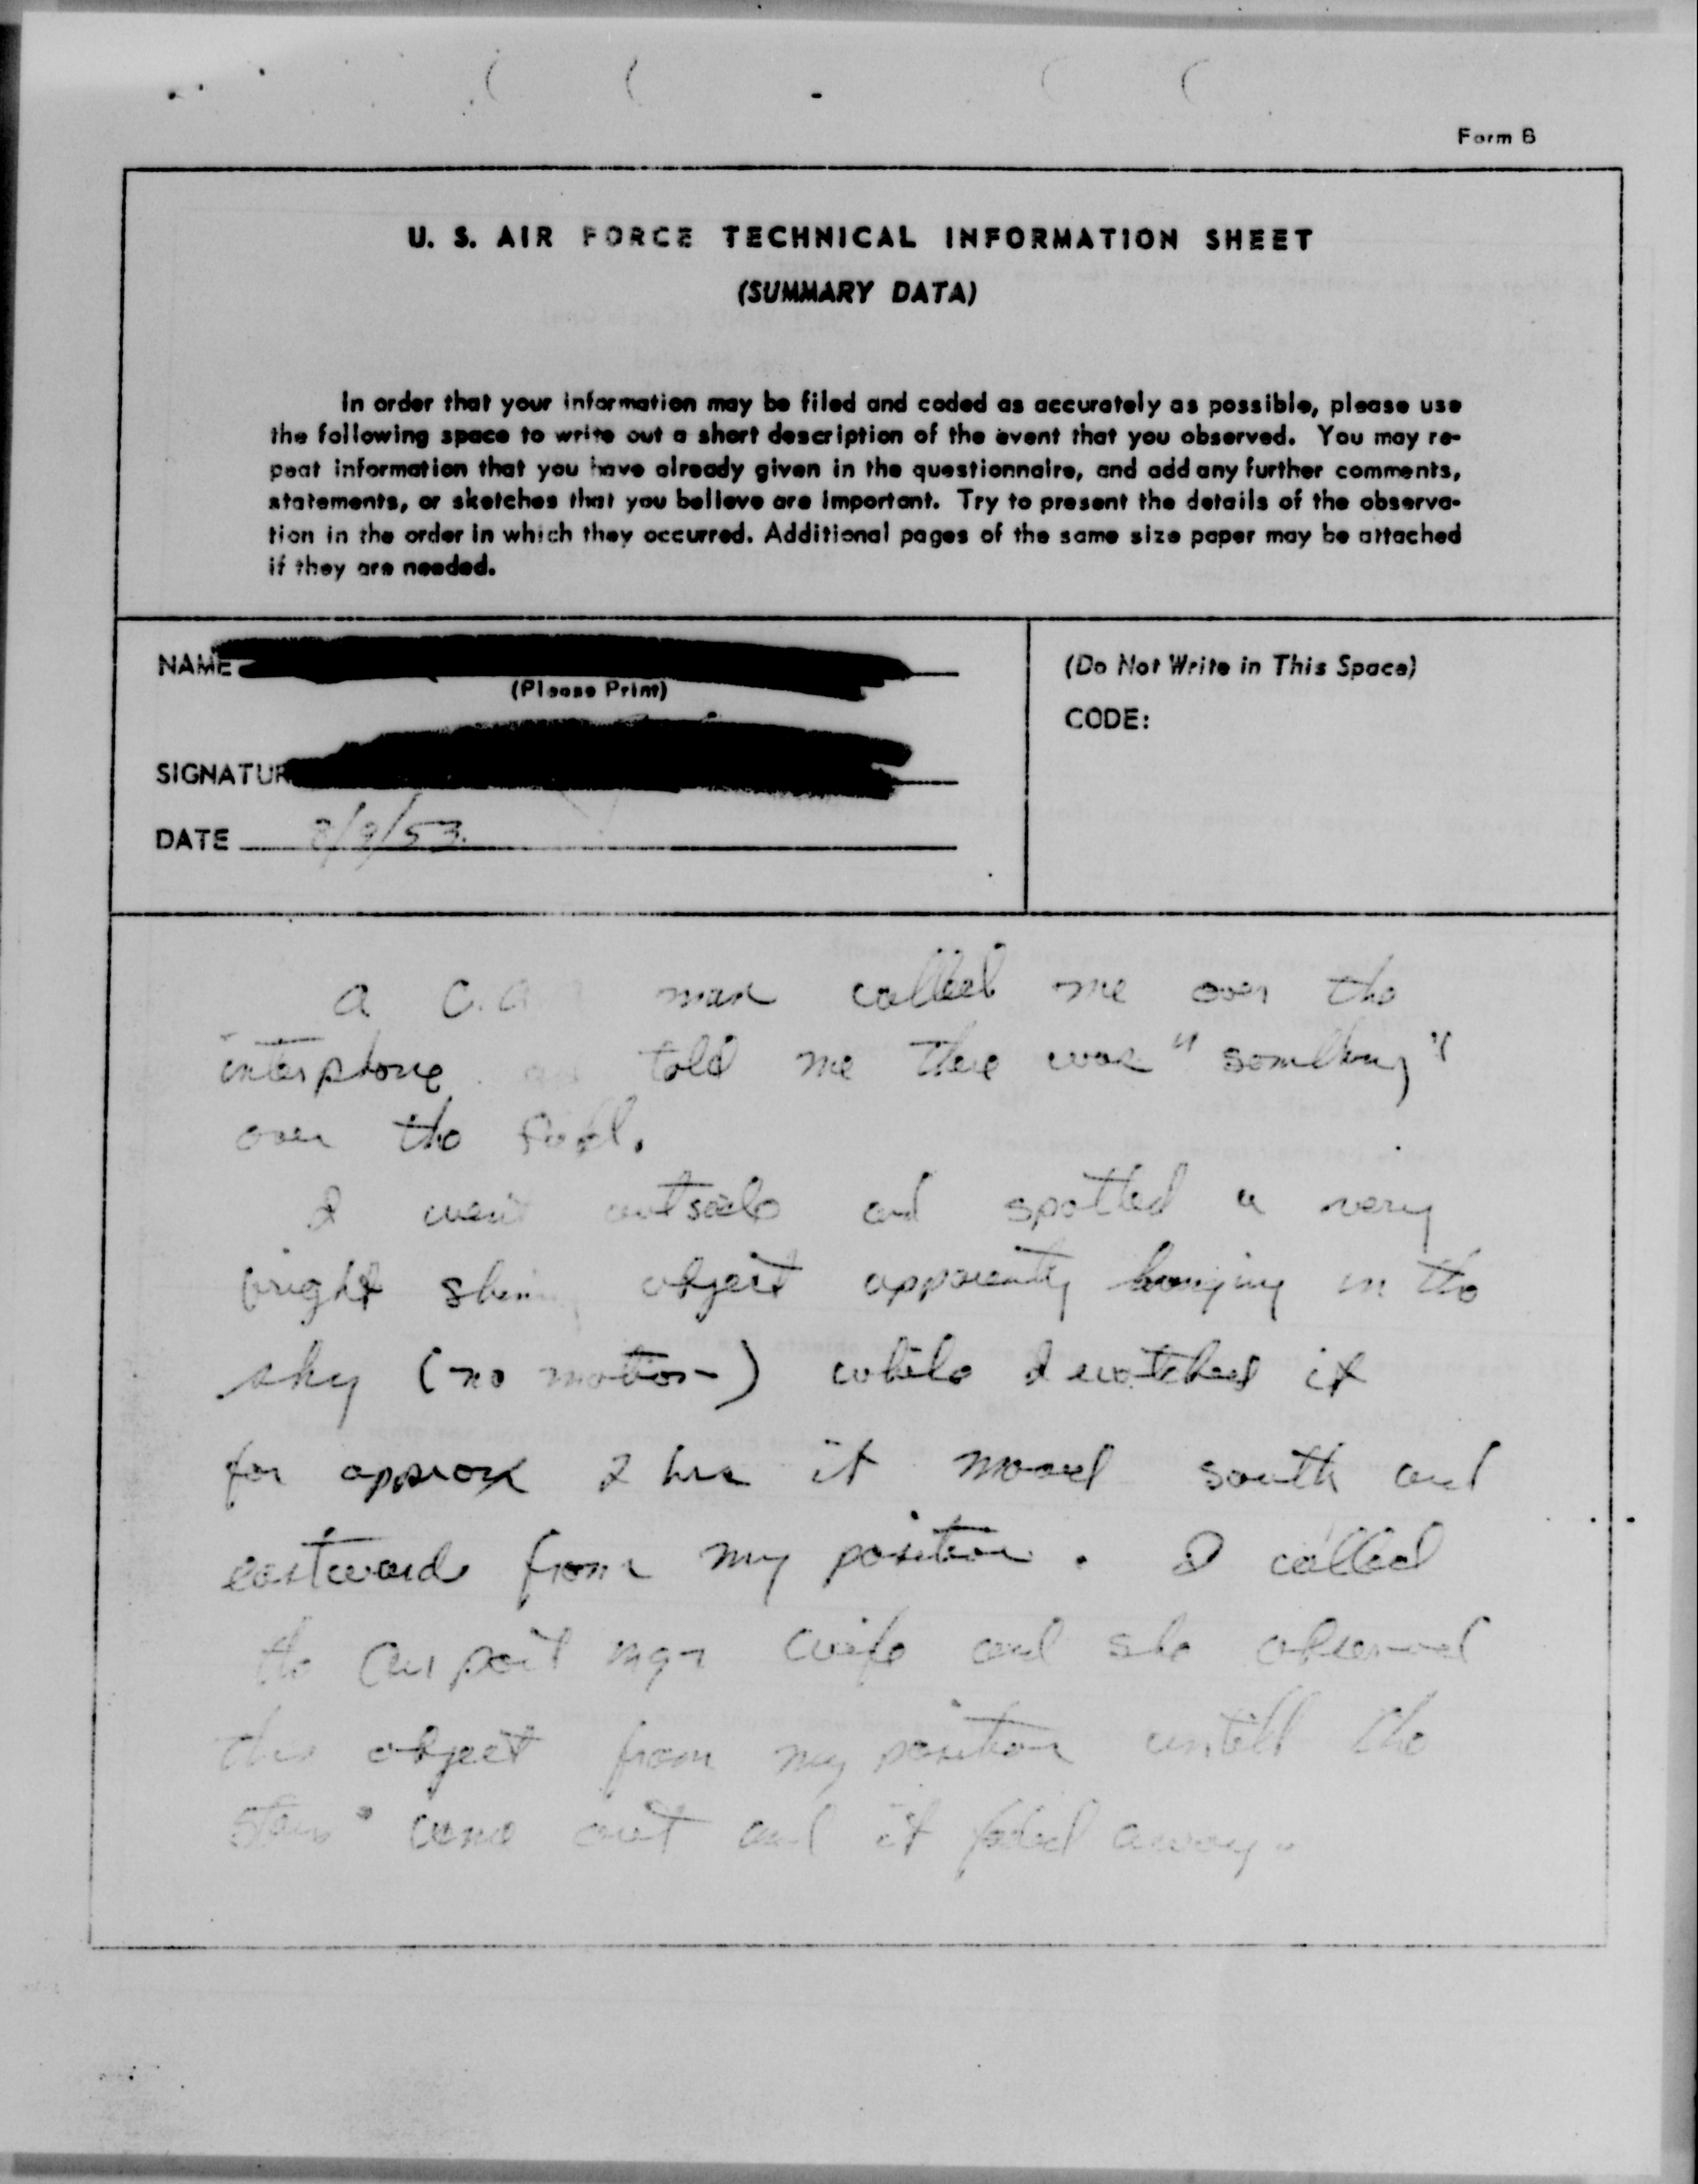 Form B
U. S. AIR FORCE TECHNICAL INFORMATION SHEET
(SUMMARY DATA)
In order that your information may be filed and coded as accurately as possible, please use
the following space to write out a short description of the event that you observed. You may re-
peat information that you have already given in the questionnaire, and add any further comments,
statements, or sketches that you believe are important. Try to present the details of the observa-
tion in the order in which they occurred. Additional pages of the same size paper may be attached
if they are needed.
NAME
(Please Print)
SIGNATUR
DATE 8/9/53.
(Do Not Write in This Space)
CODE:
a C.A man called me over the
interphone told me there was "something"
over the field.
I went outside and spotted a very
bright object apparently hanging in the
sky (no motion) while I watched it
for approx 2 hrs it moved south and
eastward from my position. I called
the airport mgr wife and she observed
this object from my position untill the
stars came out and it faded away.